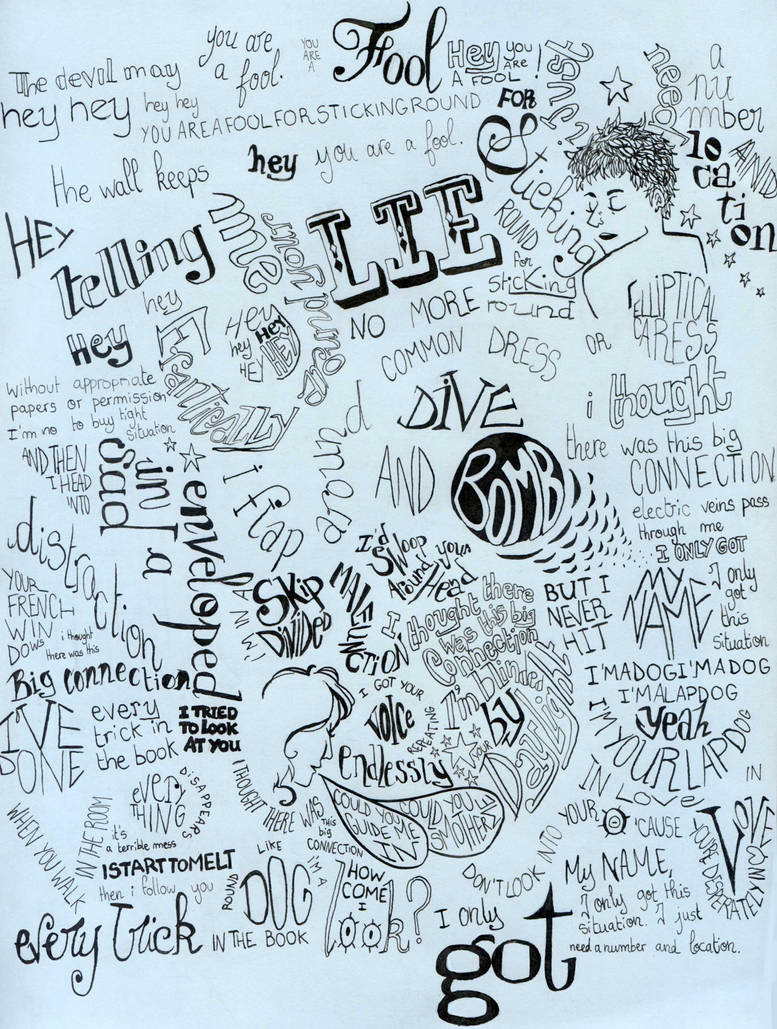 you are a fool.
YOU ARE A
Fool
Hey you ARE A FOOL!
just
need
a number
AND
location
The devil may
hey hey
hey hey
YOU ARE A FOOL FOR STICKING ROUND
FOR
Sticking
ROUND
for sticking round
the wall keeps
hey you are a fool.
HEY
telling
me
LIE
your
around
hey
HEY
frantically
Hey
hey HEY
HEY HEY
NO MORE
COMMON DRESS
OR
ELLIPTICAL CARESS
without appropriate
papers or permission
I'm no to buy tight
situation
AND THEN
I HEAD
INTO
and
more
DIVE
AND
BOMB
i thought
there was this big
CONNECTION
electric veins pass
through me
I ONLY GOT
MY NAME
I only
got
this
situation
enveloped
in a
sad
distraction
i flap
I'd
SWOOP
Around
your
Head
I'M IN A
SKIP
DIVIDED
MALFUNCTION
YOUR
FRENCH
WIN
DOWS
i thought
there was this
Big connection
I thought there
was this big
Connection
I'm blinded
by
Daylight
BUT I
NEVER
HIT
I'MADOGI'MADOG
I'MALAPDOG
yeah
I'M YOUR LAPDOG
I'VE
DONE
every
trick in
the book
I TRIED
TO LOOK
AT YOU
I GOT YOUR
VOICE
REPEATING
endlessly
YOUR
COULD YOU
GUIDE ME
IN
COULD YOU
SMOTHER
WHEN YOU WALK
IN THE ROOM
everything
DISAPPEARS
it's
a terrible mess
I START TO MELT
then i follow you
ROUND
LIKE
DOG
I'M A
I THOUGHT THERE WAS
this
big
CONNECTION
every trick
IN THE BOOK
HOW
COME
I
look?
IN LOVE
DON'T LOOK INTO YOUR
'CAUSE
YOU'RE DESPERATELY
IN
LOVE
I only
got
My NAME,
I only got this
situation. I just
need a number and location.